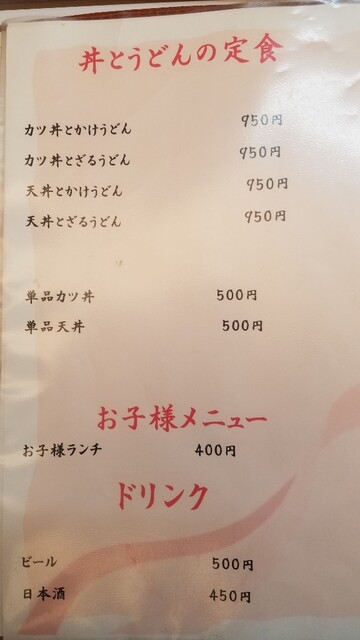 丼とうどんの定食
カツ丼とかけうどん 950円
カツ丼とざるうどん 950円
天丼とかけうどん 950円
天丼とざるうどん 950円
単品カツ丼 500円
単品天丼 500円
お子様メニュー
お子様ランチ 400円
ドリンク
ビール 500円
日本酒 450円